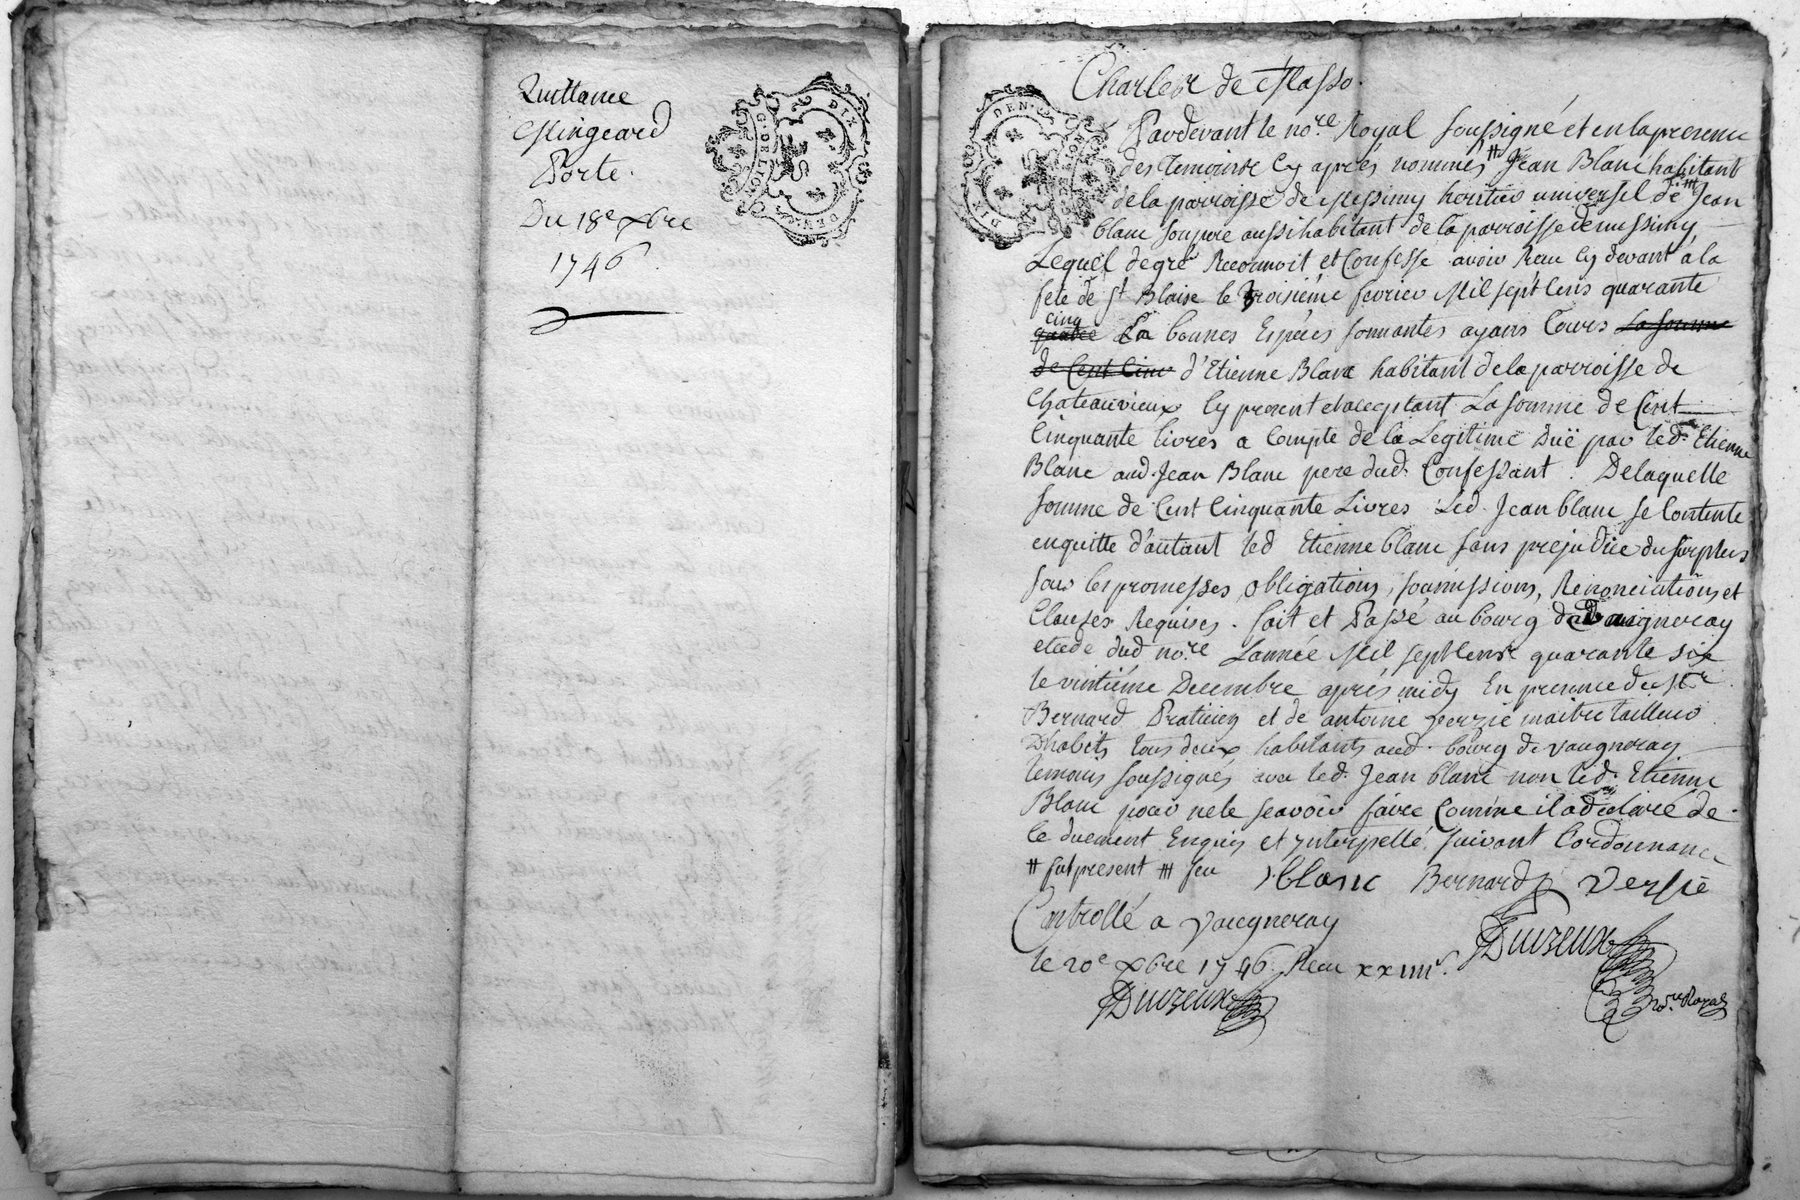 Quittance
Mingeard
Porte.
Du 18e xbre
1746
DIX
DEN.
G. DE LION
Charleve de Masso.
DEN.
DIX
Pardevant le nore Royal soussigné et en la presence
des Temoins Cy aprés nommés # Jean Blanc habitant
de la parroisse de Messimy heritier universel de ### Jean
blanc son pere aussi habitant de la parroisse de messimy
Lequel de gré Reconnoit et Confesse avoir Receu Cy devant á la
féte de St Blaise le troisiéme fevrier Mil sept Cens quarante
cinq
quatre En bonnes Espéces sonnantes ayans Cours La somme
de Cent Cinq d'Etienne Blanc habitant de la parroisse de
Chateauvieux Cy present et acceptant La somme de Cent
Cinquante livres a Compte de la Legitime Duë par led. Etienne
Blanc aud. Jean Blanc pere dud. Confessant. De laquelle
somme de Cent Cinquante Livres Led. Jean blanc se Contente
en quitte d'autant led Etienne blanc sans prejudice du surplus
sou les promesses, obligations, soumissions, Renonciations et
Clauses Requises. fait et Passé au bourg de Vaugneray
etude dud nore L'année Mil sept Cens quarante six
le vintiéme Decembre aprés midy En presence de
Bernard Praticien et de antoine verzié maitre tailleur
Dhabits tous deux habitants aud. bourg de vaugneray
temoins soussignés avec led. Jean blanc non led. Etienne
Blanc pour ne le sçavoir faire Comme il a déclaré de
Ce duement Enquis et ynterpellé suivant L'ordonnance
# fut present ### feu J blanc Bernard Versie
Controllé a Vaugneray
le 20e xbre 1746. Receu xxiiiis.
Duvzeux
Duvzeux
nore Royal